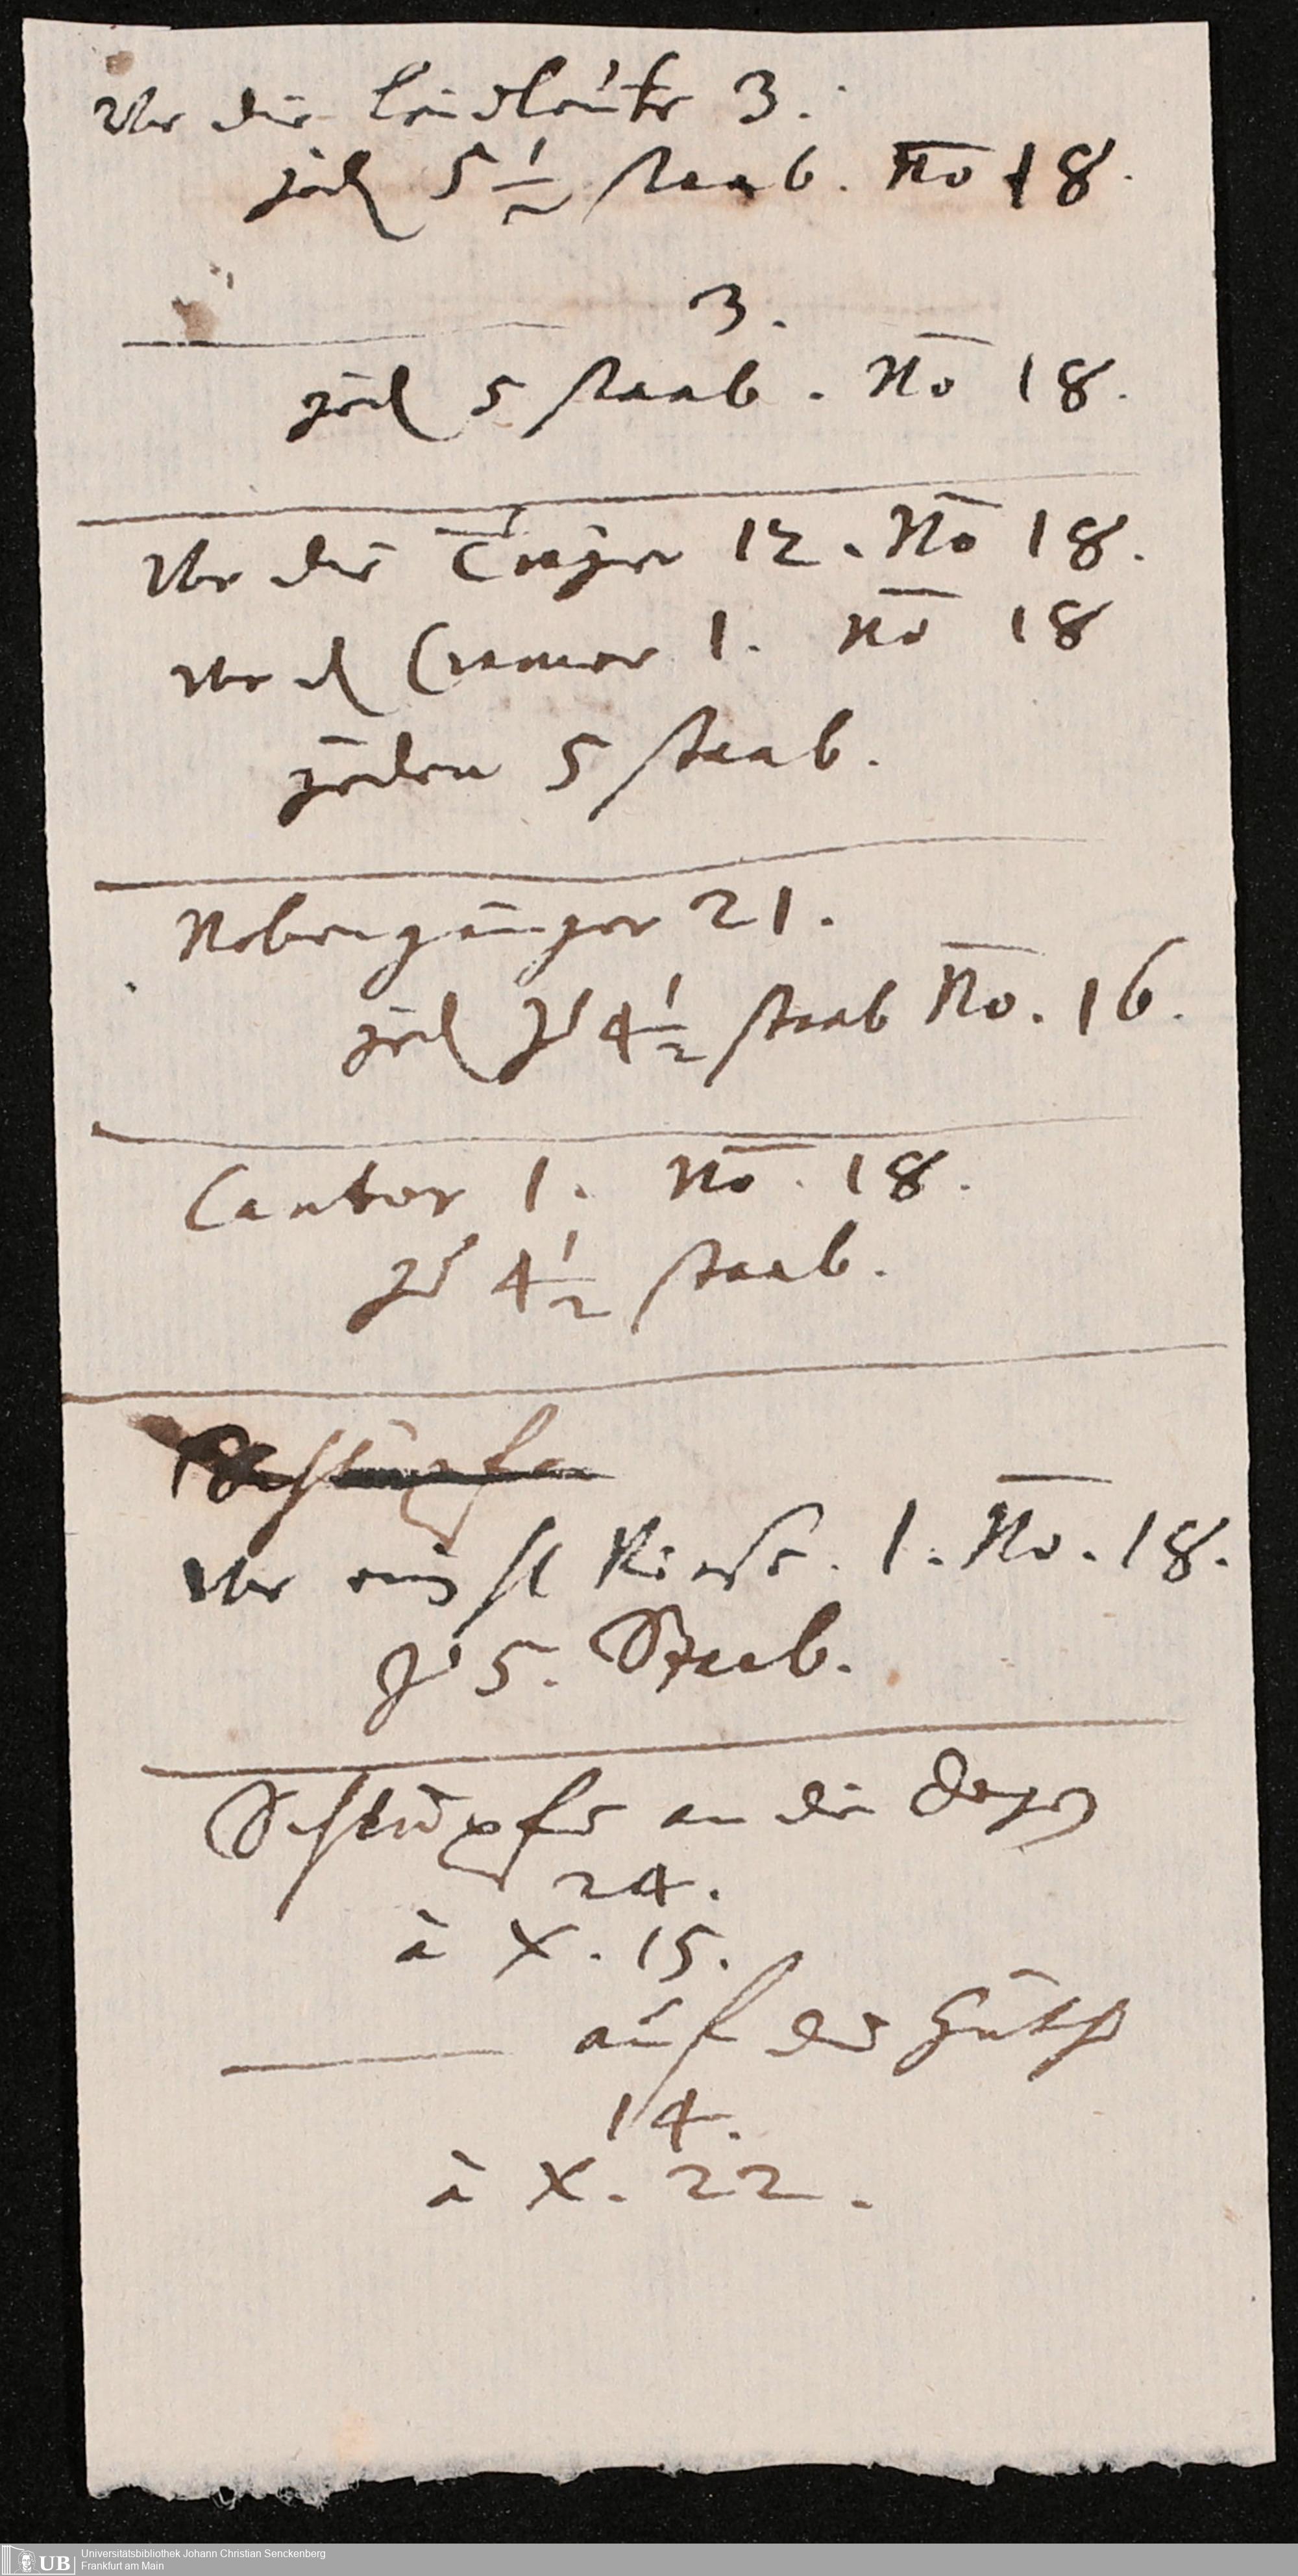 Vor die Leidleute 3.
jed 5 1/2 staab. No 18.
3.
jed 5 staab. No 18.
Vor die Träger 12. No 18.
Vor d Cramer 1. No 18
jeden 5 staab.
Nebengänger 21.
jed zu 4 1/2 staab No. 16.
Cantor 1. No. 18.
zu 4 1/2 staab.
Schlüpfe
Vor 1. No. 18.
zu 5. Staab.
Schlüpfe an die Degen
24.
à X. 15.
auf die Hüth
14.
à X. 22.
Universitätsbibliothek Johann Christian Senckenberg
Frankfurt am Main
UB